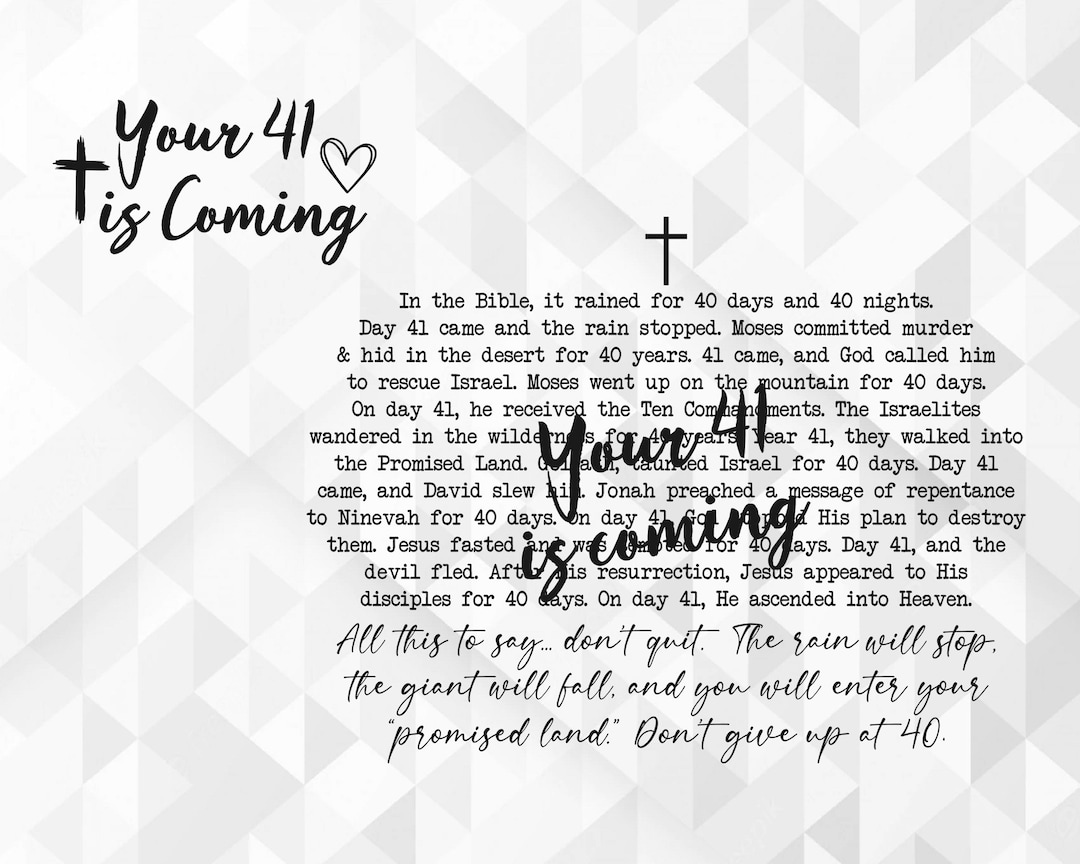 Your 41
is Coming
In the Bible, it rained for 40 days and 40 nights.
Day 41 came and the rain stopped. Moses committed murder
& hid in the desert for 40 years. 41 came, and God called him
to rescue Israel. Moses went up on the mountain for 40 days.
On day 41, he received the Ten Commandments. The Israelites
wandered in the wilderness for 40 years. Year 41, they walked into
the Promised Land. Goliath, taunted Israel for 40 days. Day 41
came, and David slew him. Jonah preached a message of repentance
to Ninevah for 40 days. On day 41, God stopped His plan to destroy
them. Jesus fasted and was tempted for 40 days. Day 41, and the
devil fled. After His resurrection, Jesus appeared to His
disciples for 40 days. On day 41, He ascended into Heaven.
Your 41
is coming
All this to say... don't quit. The rain will stop,
the giant will fall, and you will enter your
"promised land." Don't give up at 40.